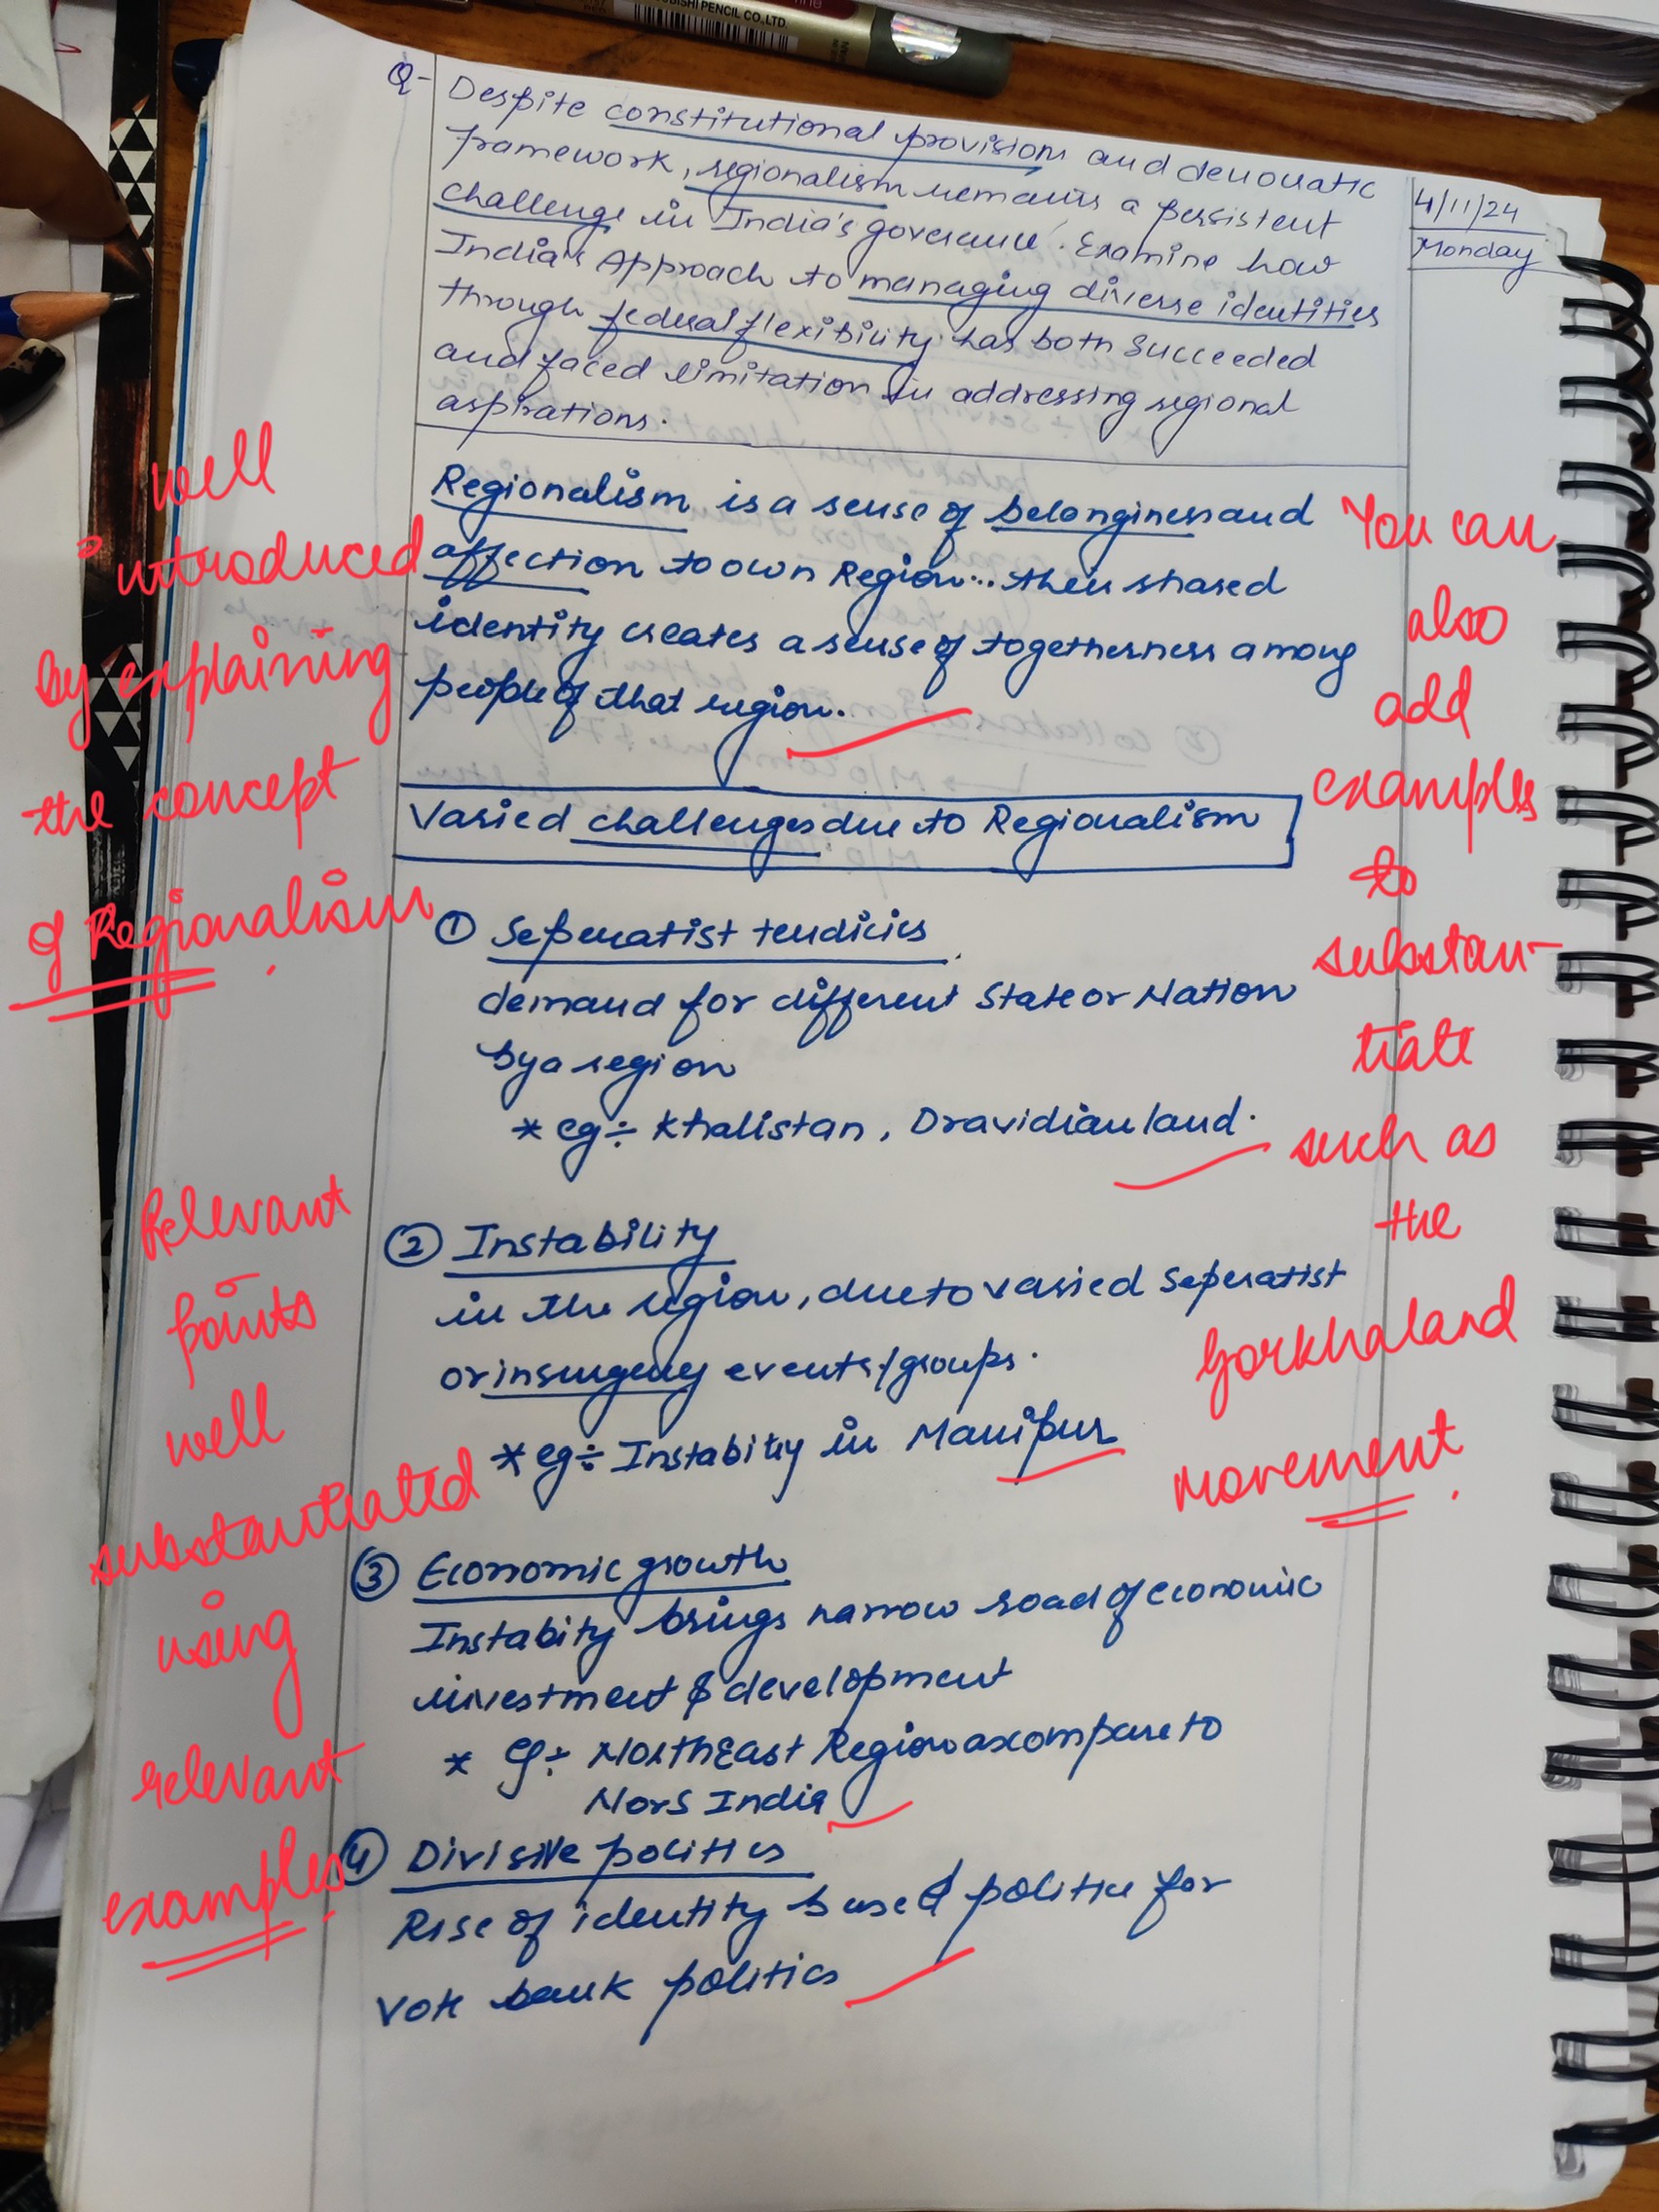 UBISHI PENCIL CO.,LTD.
Q- Despite constitutional provisions and democratic
framework, regionalism remains a persistent
challenge in India's governance. Examine how
India's Approach to managing diverse identities
through federal flexibility has both succeeded
and faced limitation in addressing regional
aspirations.
4/11/24
Monday
Regionalism is a sense of belonginess and
affection to own Region... their shared
identity creates a sense of togetherness among
people of that region.
well
introduced
by explaining
the concept
of Regionalism.
You can
also
add
examples
to
substan-
tiate
such as
the
Gorkhaland
movement.
Varied challenges due to Regionalism
① Seperatist tendicies
demand for different State or Nation
by a region
* eg÷ Khalistan, Dravidian land.
② Instability
in the region, due to varied Seperatist
or insurgency events/groups.
* eg÷ Instability in Manipur
Relevant
points
well
substantiated
using
relevant
examples.
③ Economic growth
Instabity brings narrow road of economic
investment & development
* eg÷ NorthEast Region as compare to
Nors India
④ Divisive politics
Rise of identity based politics for
vote bank politics